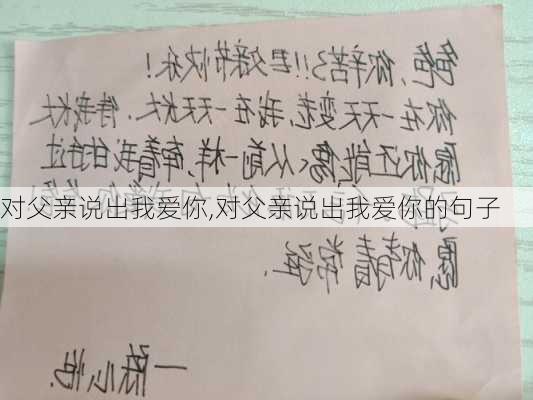 爸爸,你辛苦了!!父亲节快乐!
你在一天天变老,我在一天天长大,待我长大
愿你还能像从前一样,牵着我的手过
对父亲说出我爱你,对父亲说出我爱你的句子
愿你青春常驻.
—陈心怡.